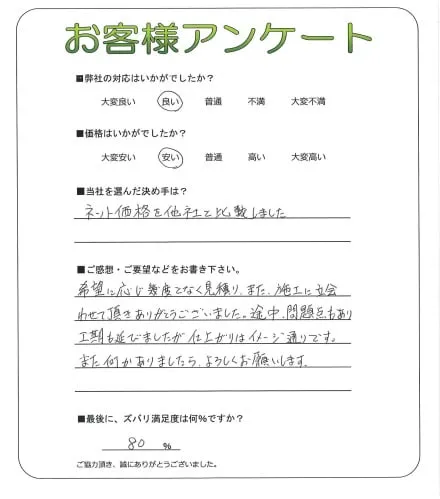 お客様アンケート
■弊社の対応はいかがでしたか?
大変良い 良い 普通 不満 大変不満
■価格はいかがでしたか?
大変安い 安い 普通 高い 大変高い
■当社を選んだ決め手は?
ネット価格を他社と比較しました
■ご感想・ご要望などをお書き下さい。
希望に応じ幾度でなく見積り、また、施工に立会
わせて頂きありがとうございました。途中、問題点もあり
工期も延びましたが仕上がりはイメージ通りです。
また何かありましたら、よろしくお願いします。
■最後に、ズバリ満足度は何%ですか?
80 %
ご協力頂き、誠にありがとうございました。